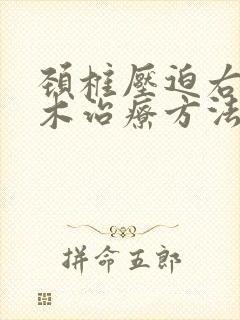 頚椎壓迫右
木治療方法
拼命五郎